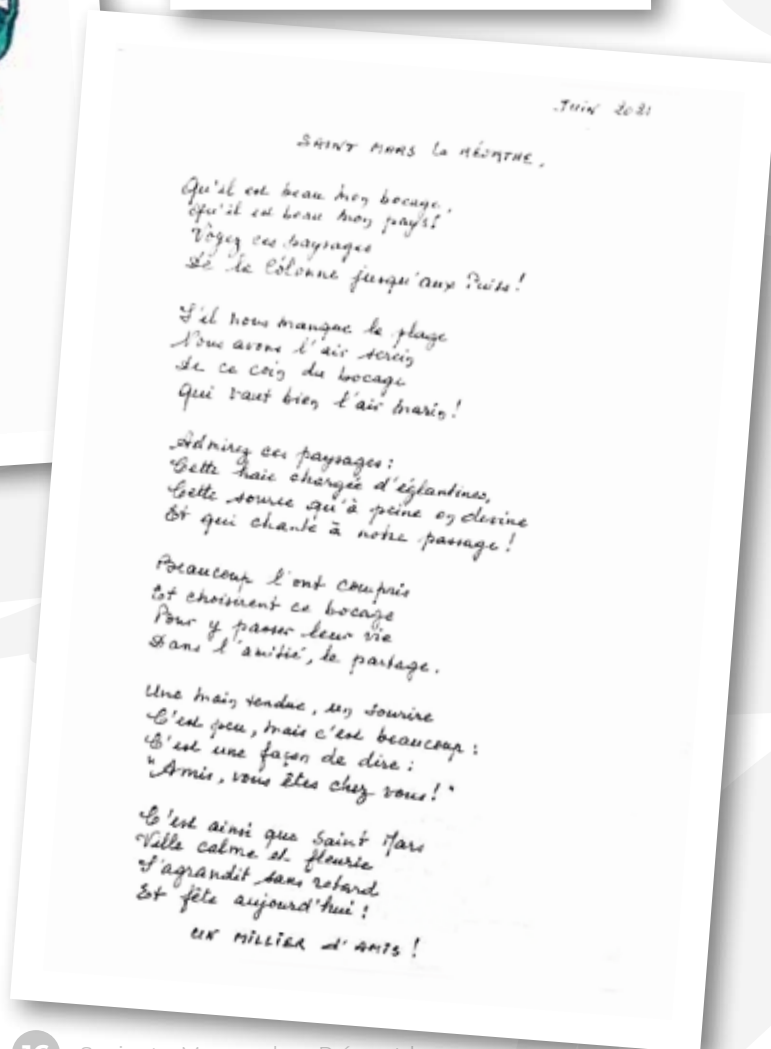 Juin 2021
SAINT MARS La RÉORTHE.
Qu'il est beau mon bocage,
Qu'il est beau mon pays!
Voyez ces paysages
De la Colonne jusqu'aux Puits!
S'il nous manque la plage
Nous avons l'air serein
De ce coin du bocage
Qui vaut bien l'air marin!
Admirez ces paysages:
Cette haie chargée d'églantines,
Cette source qu'à peine on devine
Et qui chante à notre passage!
Beaucoup l'ont compris
Et choisirent ce bocage
Pour y passer leur vie
Dans l'amitié, le partage.
Une main tendue, un sourire
C'est peu, mais c'est beaucoup:
C'est une façon de dire:
"Amis, vous êtes chez vous!"
C'est ainsi que Saint Mars
Ville calme et fleurie
S'agrandit sans retard
Et fête aujourd'hui!
UN MILLIER d'AMIS!
16